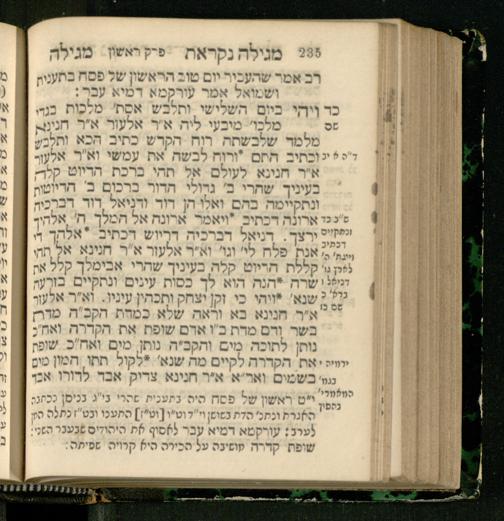 235 מגילה נקראת פרק ראשון מגילה
רב אמר שהעביר יום טוב הראשון של פסח בתענית
ושמואל אמר עורקמא דמיא עבר:
כד ויהי ביום השלישי ותלבש אסת' מלכות בגדי
שם מלכו' מיבעי ליה א"ר אלעזר א"ר חנינא
מלמד שלבשתה רוח הקדש כתיב הכא ותלבש
וכתיב התם *ורוח לבשה את עמשי וא"ר אלעזר
א"ר חנינא לעולם אל תהי ברכת הדיוט קלה
בעיניך שהרי ב' גדולי הדור ברכום ב' הדיוטות
ונתקיימה בהם ואלו הן דוד ודניאל דוד דברכיה
ארונה דכתיב *ויאמר ארונה אל המלך ה' אלהיך
ירצך. דניאל דברכיה דריוש דכתיב *אלהך די
אנת פלח לי' וגו' וא"ר אלעזר א"ר חנינא אל תהי
קללת הדיוט קלה בעיניך שהרי אבימלך קלל את
שרה *הנה הוא לך כסות עינים ונתקיים בזרעה
שנא' *ויהי כי זקן יצחק ותכהין עיניו. וא"ר אלעזר
א"ר חנינא בא וראה שלא כמדת הקב"ה מדת
בשר ודם מדת ב"ו אדם שופת את הקדרה ואח"כ
נותן לתוכה מים והקב"ה נותן מים ואח"כ שופת
את הקדרה לקיים מה שנא' *לקול תתו המון מים
בשמים ואר"א א"ר חנינא צדיק אבד לדורו אבד
ד"ה א יב
ש"ב כד
דניאל ו
שם כז
ירמיה י
י"ט ראשון של פסח היה בתענית שהרי בי"ג בניסן נכתבה
האגרת ונתנ' הדת בשושן וי"ד וט"ו [וט"ז] התענו ובט"ז נתלה המן
לערב: עורקמא דמיא עבר לאסוף את היהודים שבעבר השני:
שופת קדרה מושיבה על הכירה היא קרויה שפיתה: